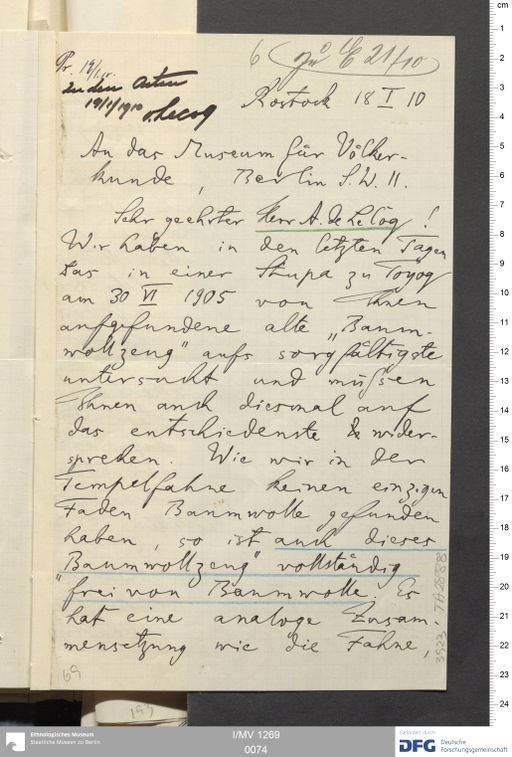 6 zu E 21/10
Pr. 19/I 10.
zu den Akten
19/1/1910
v. Lecoq
Rostock 18 I 10
An das Museum für Völker-
kunde, Berlin S. W. 11.
Sehr geehrter Herr A. de Le Coq!
Wir haben in den letzten Tagen
das in einer Stupa zu Toyoq
am 30 VI 1905 von Ihnen
aufgefundene alte „Baum-
wollzeug" aufs sorgfältigste
untersucht und müssen
Ihnen auch diesmal auf
das entschiedenste wider-
sprechen. Wie wir in der
Tempelfahne keinen einzigen
Faden Baumwolle gefunden
haben, so ist auch dieses
„Baumwollzeug" vollständig
frei von Baumwolle. Es
hat eine analoge Zusam-
mensetzung wie die Fahne,
69
3923 TA 2888
193
Ethnologisches Museum
Staatliche Museen zu Berlin
I/MV 1269
0074
Gefördert durch
DFG Deutsche
Forschungsgemeinschaft
cm
1
2
3
4
5
6
7
8
9
10
11
12
13
14
15
16
17
18
19
20
21
22
23
24